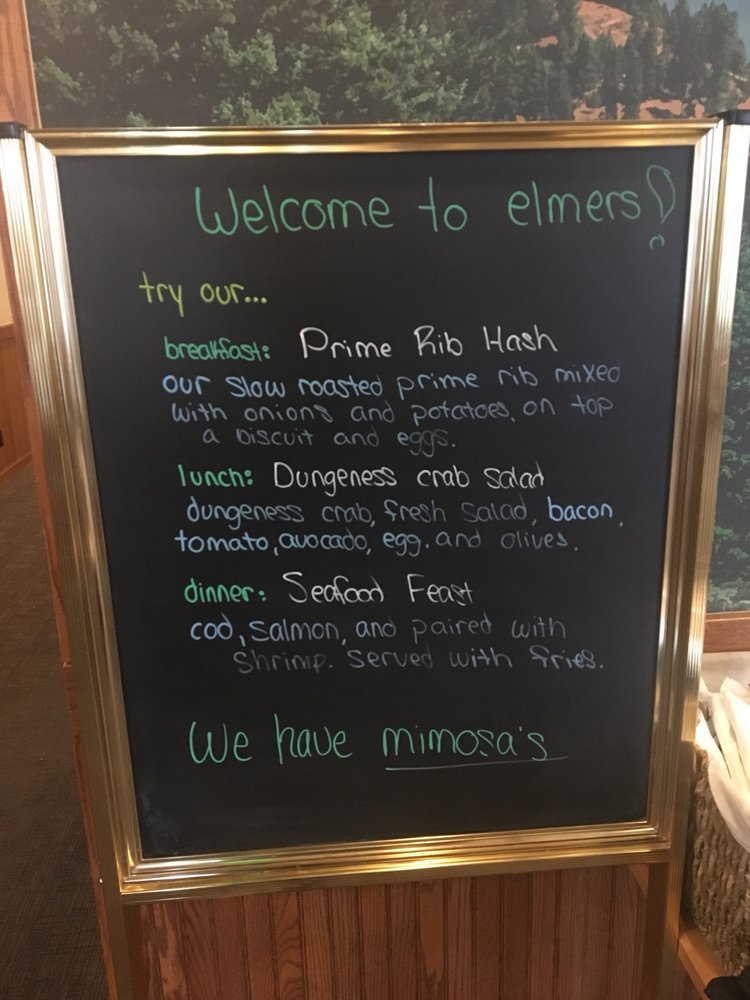 Welcome to elmers!
try our...
breakfast: Prime Rib Hash
our slow roasted prime rib mixed
with onions and potatoes, on top
a biscuit and eggs.
lunch: Dungeness crab salad
dungeness crab, fresh salad, bacon,
tomato, avocado, egg, and olives.
dinner: Seafood Feast
cod, salmon, and paired with
shrimp. served with fries.
We have mimosa's